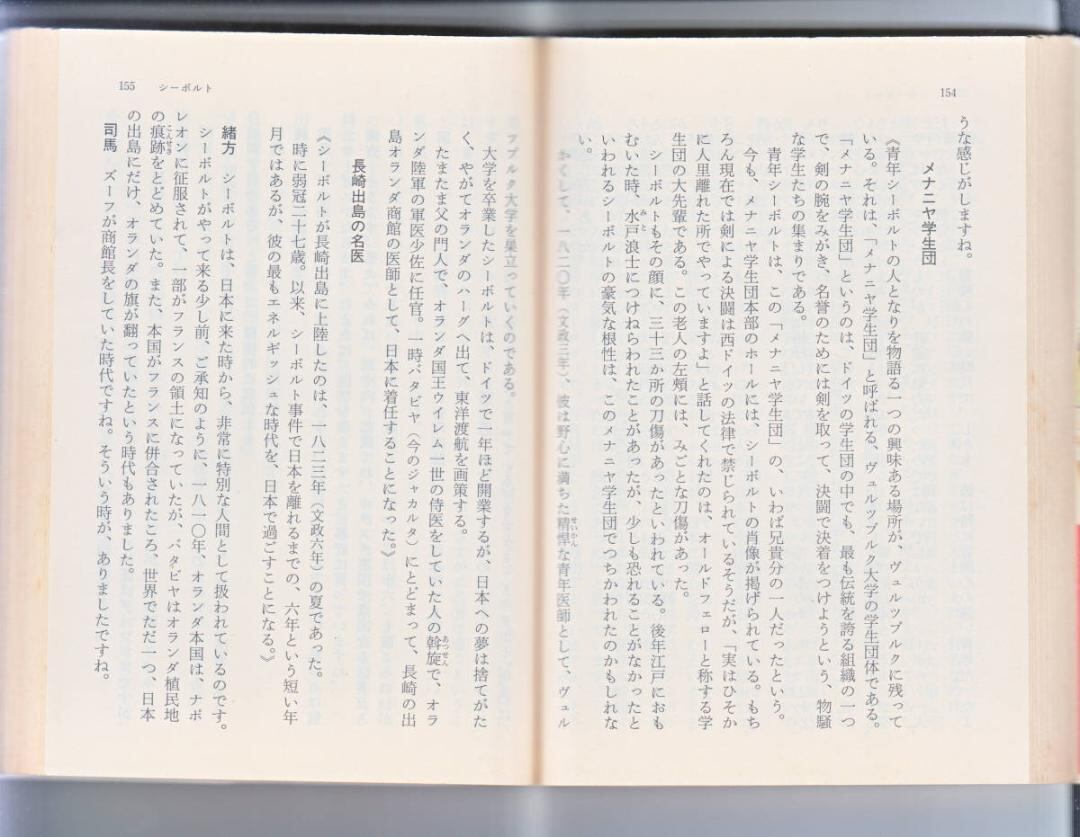 154
うな感じがしますね。
メナニヤ学生団
《青年シーボルトの人となりを物語る一つの興味ある場所が、ヴュルツブルクに残って
いる。それは、「メナニヤ学生団」と呼ばれる、ヴュルツブルク大学の学生団体である。
「メナニヤ学生団」というのは、ドイツの学生団の中でも、最も伝統を誇る組織の一つ
で、剣の腕をみがき、名誉のためには剣を取って、決闘で決着をつけようという、物騒
な学生たちの集まりである。
青年シーボルトは、この「メナニヤ学生団」の、いわば兄貴分の一人だったという。
今も、メナニヤ学生団本部のホールには、シーボルトの肖像が掲げられている。もち
ろん現在では剣による決闘は西ドイツの法律で禁じられているそうだが、「実はひそか
に人里離れた所でやっていますよ」と話してくれたのは、オールドフェローと称する学
生団の大先輩である。この老人の左頰には、みごとな刀傷があった。
シーボルトもその顔に、三十三か所の刀傷があったといわれている。後年江戸におも
むいた時、水戸浪士につけねらわれたことがあったが、少しも恐れることがなかったと
いわれるシーボルトの豪気な根性は、このメナニヤ学生団でつちかわれたのかもしれな
い。
かくして、一八二〇年（文政三年）、彼は野心に満ちた精悍な青年医師として、ヴュル
155 シーボルト
ツブルク大学を巣立っていくのである。
大学を卒業したシーボルトは、ドイツで一年ほど開業するが、日本への夢は捨てがた
く、やがてオランダのハーグへ出て、東洋渡航を画策する。
たまたま父の門人で、オランダ国王ウイレム一世の侍医をしていた人の斡旋で、オラ
ンダ陸軍の軍医少佐に任官。一時バタビヤ（今のジャカルタ）にとどまって、長崎の出
島オランダ商館の医師として、日本に着任することになった。》
長崎出島の名医
《シーボルトが長崎出島に上陸したのは、一八二三年（文政六年）の夏であった。
時に弱冠二十七歳。以来、シーボルト事件で日本を離れるまでの、六年という短い年
月ではあるが、彼の最もエネルギッシュな時代を、日本で過ごすことになる。》
緒方 シーボルトは、日本に来た時から、非常に特別な人間として扱われているのです。
シーボルトがやって来る少し前、ご承知のように、一八一〇年、オランダ本国は、ナポ
レオンに征服されて、一部がフランスの領土になっていたが、バタビヤはオランダ植民地
の痕跡をとどめていた。また、本国がフランスに併合されたころ、世界でただ一つ、日本
の出島にだけ、オランダの旗が翻っていたという時代もありました。
司馬 ズーフが商館長をしていた時代ですね。そういう時が、ありましたですね。